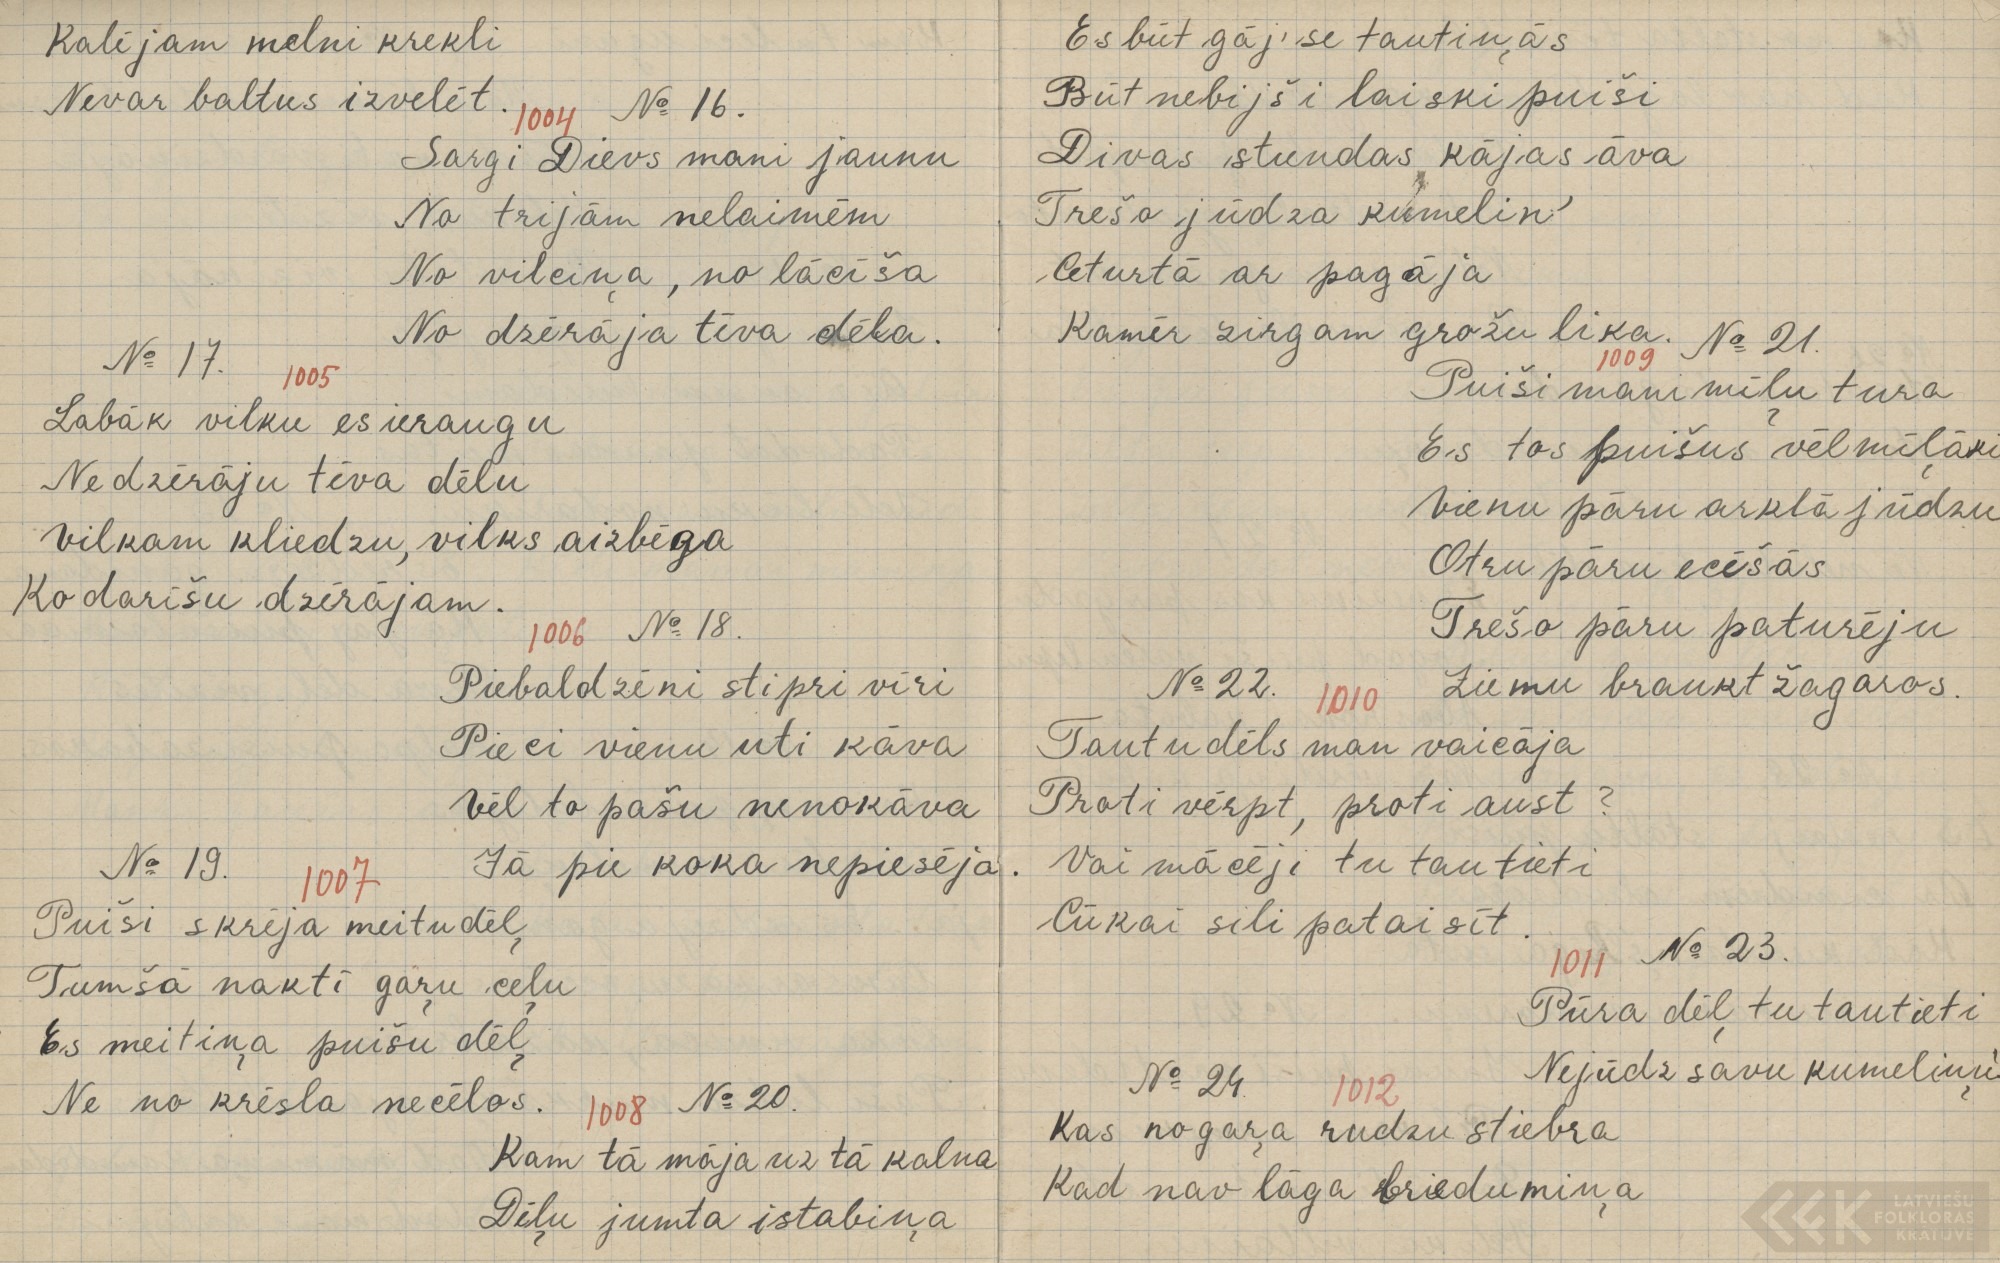 Kalējam melni krekli
Nevar baltus izvelēt.
1004 № 16.
Sargi Dievs mani jaunu
No trijām nelaimēm
No vilciņa, no lācīša
No dzērāja tēva dēla.
№ 17. 1005
Labāk vilku es ieraugu
Ne dzērāju tēva dēlu
Vilkam kliedzu, vilks aizbēga
Ko darīšu dzērājam.
1006 № 18.
Piebaldzēni stipri vīri
Pieci vienu uti kāva
Vēl to pašu nenokāva
Jā pie koka nepiesēja.
№ 19. 1007
Puiši skrēja meitu dēļ
Tumšā naktī gaŗu ceļu
Es meitiņa puišu dēļ
Ne no krēsla necēlos.
1008 № 20.
Kam tā māja uz tā kalna
Dēļu jumta istabiņa
Es būt gāj'se tautiņās
Būt nebijši laiski puiši
Divas stundas kājas āva
Trešo jūdza kumelin'
Ceturtā ar pagāja
Kamēr zirgam grožu lika.
1009 № 21.
Puiši mani mīļu tura
Es tos puišus vēl mīļāki
Vienu pāru arklā jūdzu
Otru pāru ecēšās
Trešo pāru paturēju
Ziemu braukt žagaros.
№ 22. 1010
Tautu dēls man vaicāja
Proti vērpt, proti aust?
Vai mācēji tu tautieti
Cūkai sili pataisīt.
1011 № 23.
Pūra dēļ tu tautieti
Nejūdz savu kumeliņu
№ 24. 1012
Kas no gaŗa rudzu stiebra
Kad nav lāga brieduminņa
LATVIEŠU
FOLKLORAS
KRĀTUVE